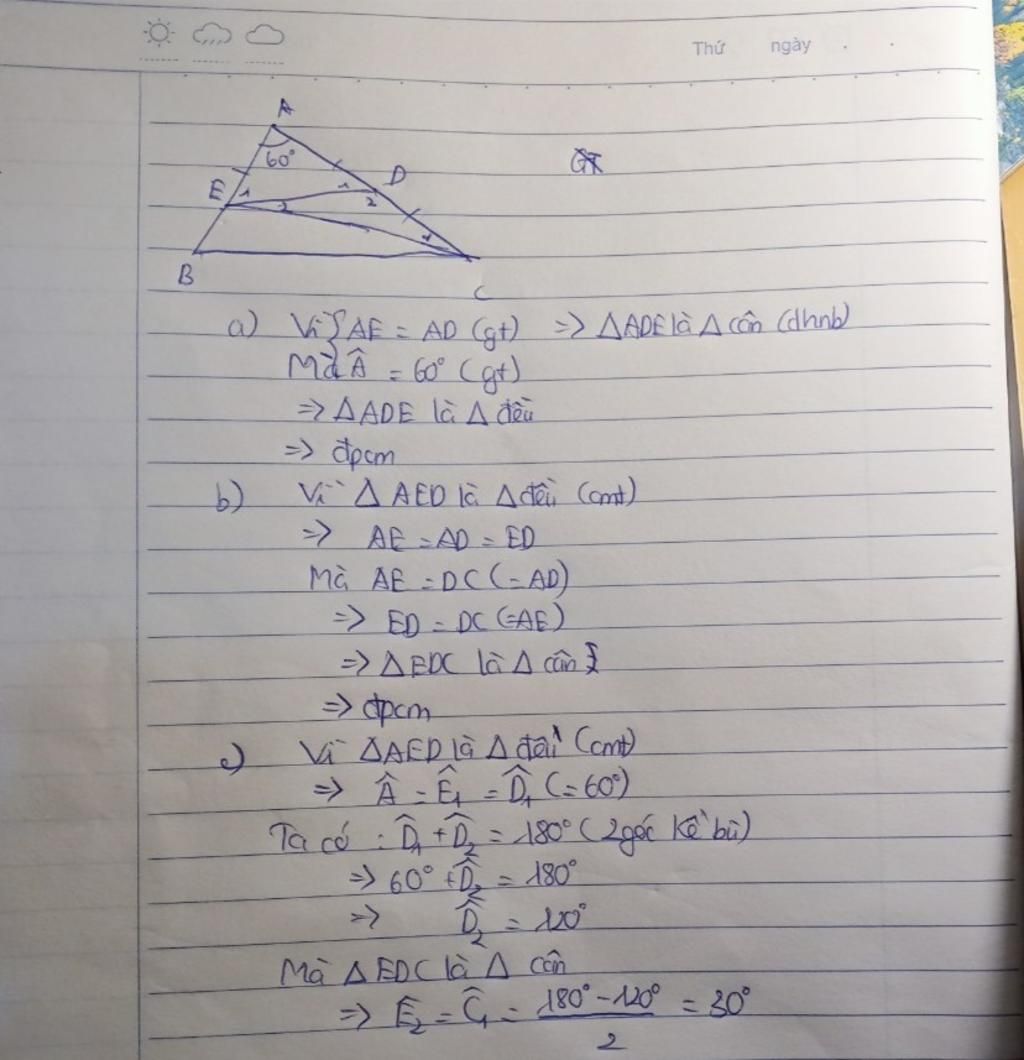 Thứ ngày
A
60°
GT
E 1 1 D
2 2
1
B
C
a) Vì AE = AD (gt) => △ADE là △ cân (dhnb)
Mà Â = 60° (gt)
=> △ADE là △ đều
=> đpcm
b) Vì △ AED là △ đều (cmt)
=> AE = AD = ED
Mà AE = DC (=AD)
=> ED = DC (=AE)
=> △EDC là △ cân
=> đpcm
c) Vì △AED là △ đều (cmt)
=> Â = Ê₁ = D̂₁ (=60°)
Ta có : D̂₁ + D̂₂ = 180° (2 góc kề bù)
=> 60° + D̂₂ = 180°
=> D̂₂ = 120°
Mà △ EDC là △ cân
=> Ê₂ = Ĉ₁ = 180° - 120° = 30°
2